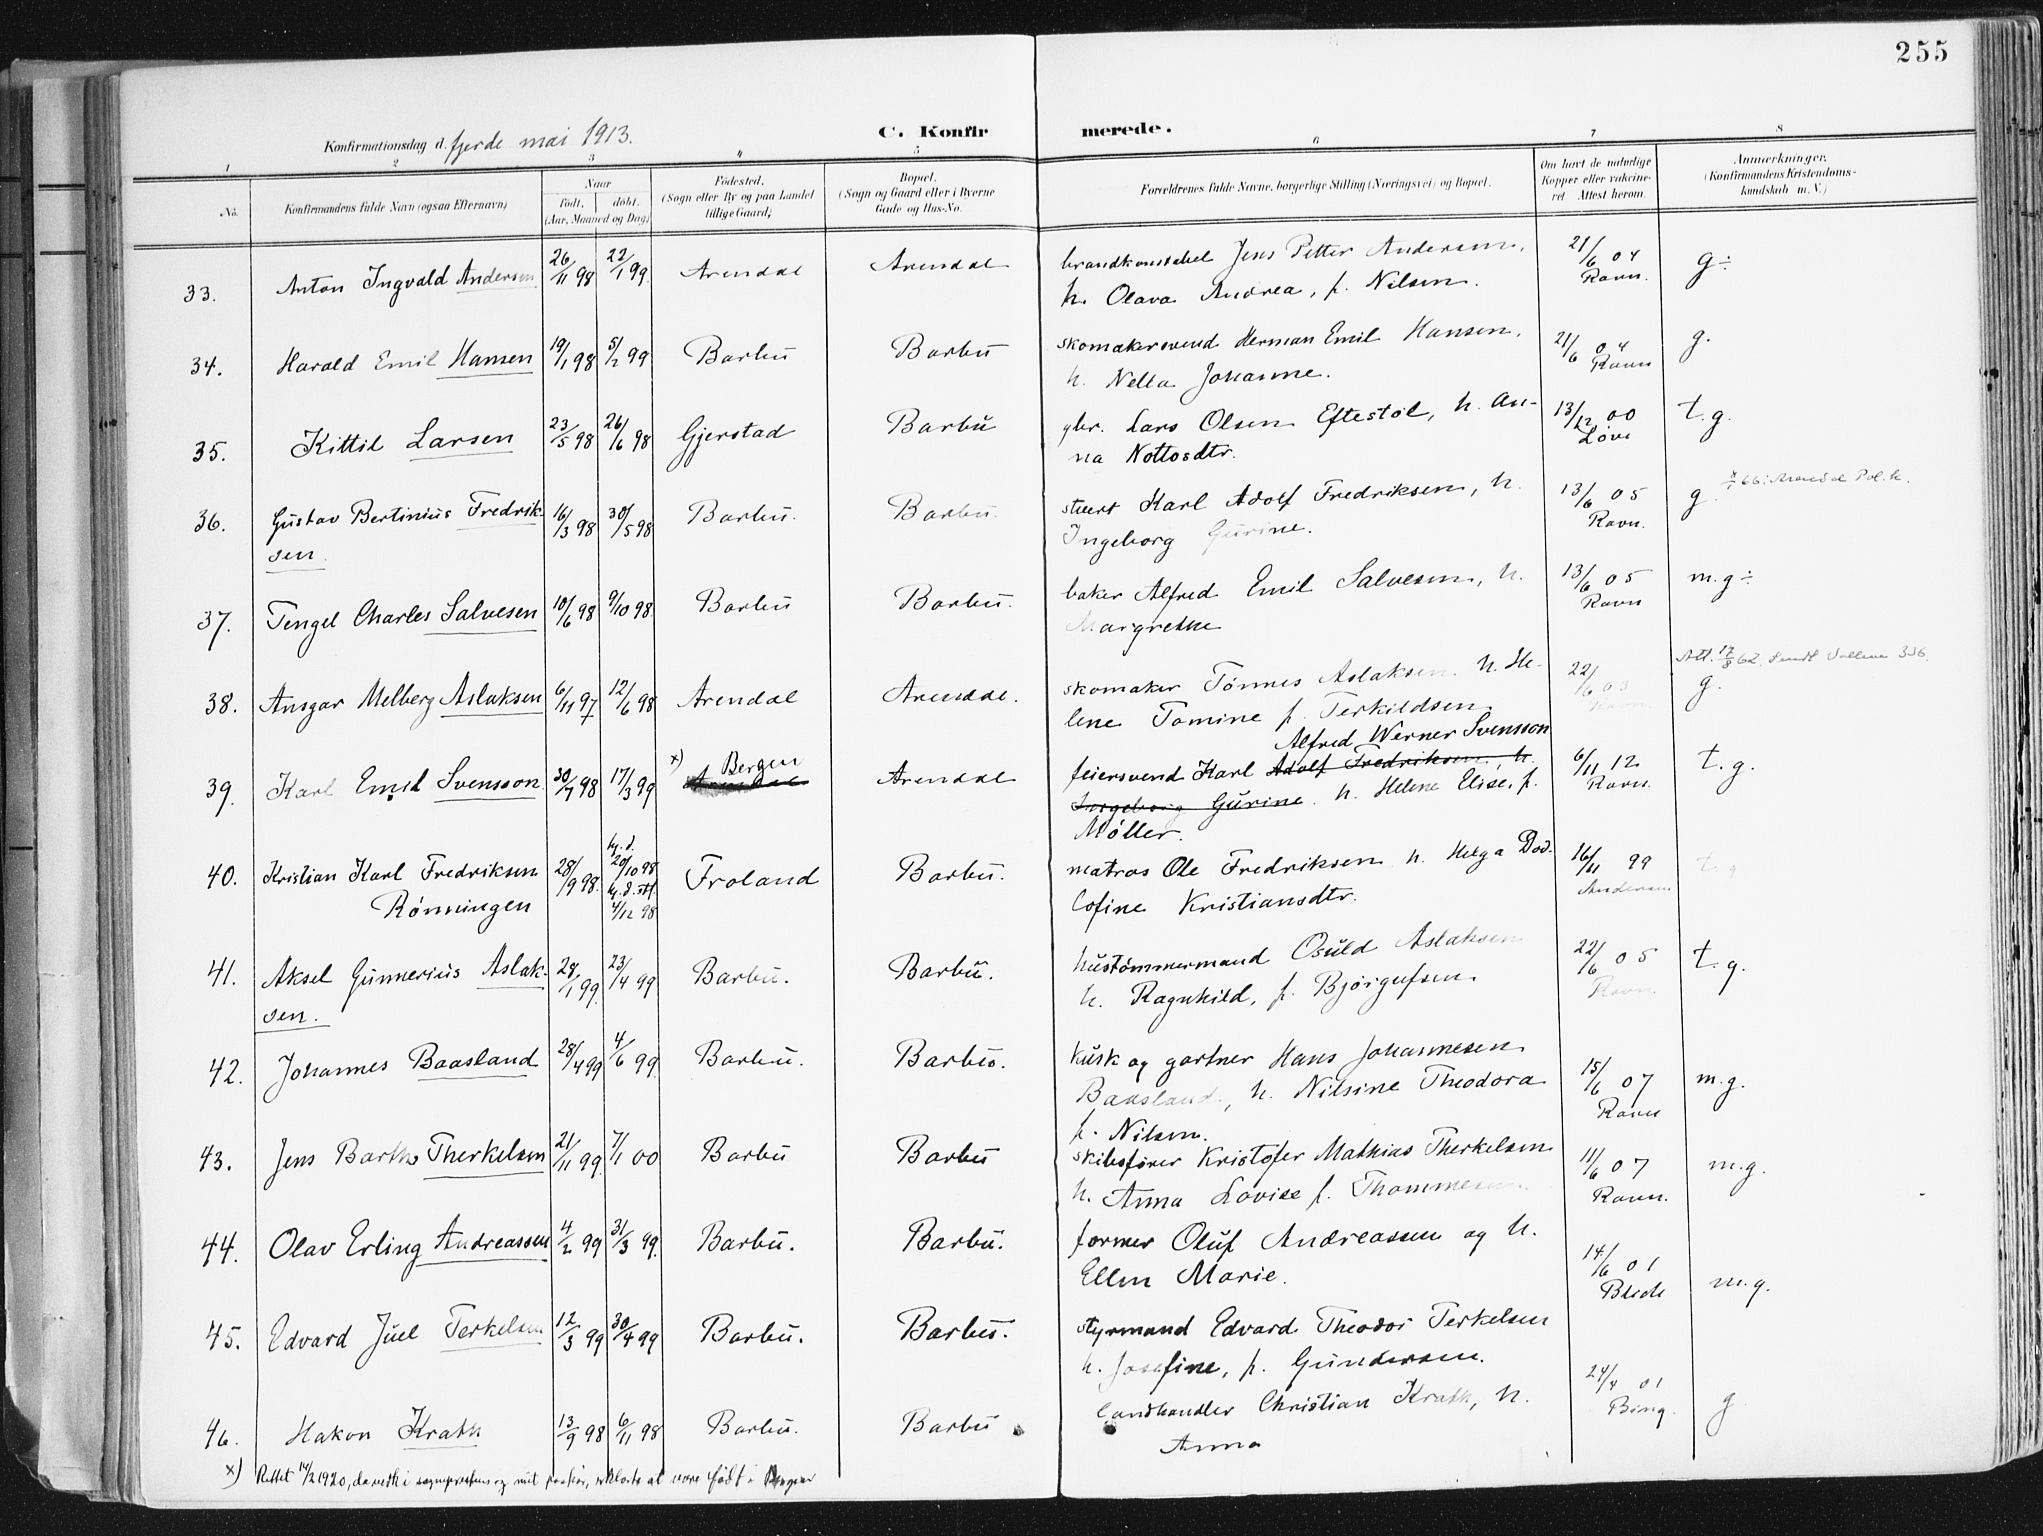 255
Konfirmationsdag d. fjerde mai 1913. C. Konfirmerede.
1 2 3 4 5 6 7 8
No. Konfirmandens fulde Navn (ogsaa Efternavn) Naar født. døbt. (Aar, Maaned og Dag) Fødested. (Sogn eller By og paa Landet tillige Gaard) Bopæl. (Sogn og Gaard eller i Byerne Gade og Hus-No. Forældrenes fulde Navne, borgerlige Stilling (Næringsvei) og Bopæl. Om havt de naturlige Kopper eller vakcineret Attest herom. Anmærkninger. (Konfirmandens Kristendomskundskab m. V.)
33. Anton Ingvald Andersen 26/11 98 22/1 99. Arendal Arendal brandkonstabel Jens Petter Andersen, 21/6 04 g÷
h. Olava Andrea, f. Nilsen. Ravn.
34. Harald Emil Hansen 19/1 98 5/2 99 Barbu Barbu skomakersvend Herman Emil Hansen, 21/6 04 g.
h. Nella Johanne. Ravn
35. Kittil Larsen 23/5 98 26/6 98 Gjerstad Barbu gbr. Lars Olsen Eftestøl, h. An- 13/12 00 t.g.
na Nottosdtr. Løvi
36. Gustav Bertinius Fredrik- 16/3 98 30/5 98 Barbu. Barbu. stuert Karl Adolf Fredriksen, h. 13/6 05 g. 66: Arendal Pol.k.
sen. Ingeborg Gurine. Ravn.
37. Tengel Charles Salvesen 10/6 98 9/10 98. Barbu Barbu. baker Alfred Emil Salvesen, h. 13/6 05 m.g÷
Margrethe Ravn
38. Ansgar Melberg Aslaksen 6/11 97 12/6 98 Arendal Arendal. skomaker Tønnes Aslaksen h. He- 22/6 03 g. Att. 17/8 62. Sendt 336.
lene Tomine f. Terkildsen. Ravn.
Alfred Werner Svensson
39. Karl Emil Svensson 30/7 98 17/3 99 x) Bergen Arendal Arendal feiersvend Karl Adolf Fredriksen, h. 6/11 12 t.g.
Ingeborg Gurine. h. Helene Elise, f. Ravn.
Møller.
40. Kristian Karl Fredriksen 28/9 98. hj.d. 20/10 98 Froland Barbu. matros Ole Fredriksen h. Helga Dod. 16/11 99 t.g
Rønningen hj.d. stf. 4/12 98 Cofine Kristiansdtr. Andersen
41. Aksel Gunnerius Aslak- 28/1 99 23/4 99 Barbu. Barbu. hustømmermand Osuld Aslaksen 22/6 05 t.g.
sen. h. Ragnhild, f. Bjørgufsen. Ravn.
42. Johannes Baasland 28/4 99 4/6 99. Barbu. Barbu. kusk og gartner Hans Johannesen 15/6 07 m.g.
Baasland, h. Nilsine Theodora Ravn
f. Nilsen.
43. Jens Barth Therkelsen 21/11 99. 7/1 00 Barbu Barbu skibsfører Kristofer Mathias Therkelsen 11/6 07 m.g.
h. Anna Lovise f. Thommesen Ravn.
44. Olav Erling Andreassen 4/2 99 31/3 99. Barbu. Barbu. former Oluf Andreassen og h. 14/6 01 m.g.
Ellen Marie. Blich
45. Edvard Juel Terkelsen 12/3 99 30/4 99 Barbu. Barbu. styrmand Edvard Theodor Terkelsen
h. Josefine, f. Gundersen.
46. Hakon Krath 13/9 98 6/11 98 Barbu. Barbu landhandler Christian Krath, h. 24/4 01 g
Anna Bing.
x) Rettet 14/2 1920, da vedk i og mit erklærte at være født i Bergen